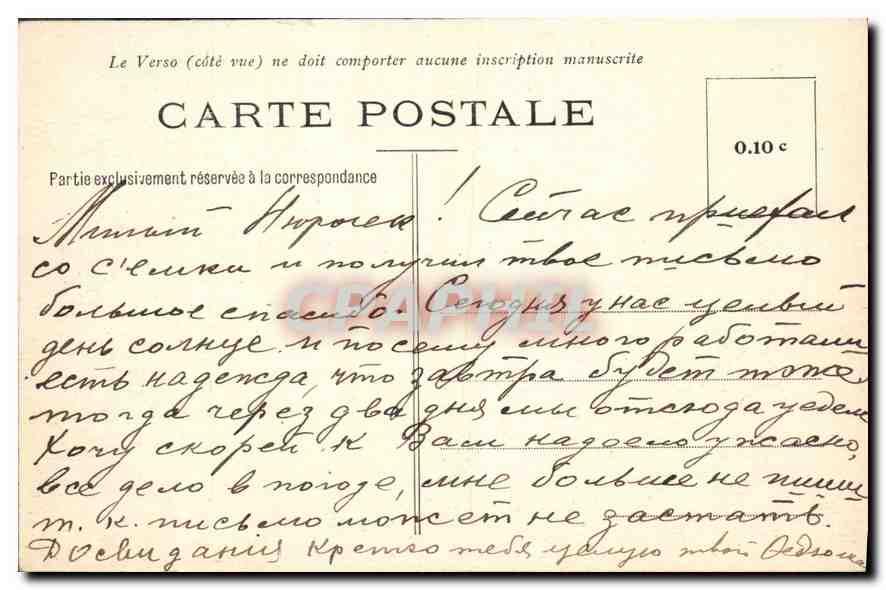 Le Verso (côté vue) ne doit comporter aucune inscription manuscrite
CARTE POSTALE
0.10 c
Partie exclusivement réservée à la correspondance
Милый Нюрочек! Сейчас приехал
со с'емки и получил твое письмо
большое спасибо. Сегодня у нас целый
день солнце и посему много работали
есть надежда, что завтра будет тоже
тогда через два дня мы отсюда уедем
Хочу скорей к Вам надоело ужасно,
все дело в погоде, мне больше не пиши
т.к. письмо может не застать.
Досвидания крепко тебя целую твой Федюша
CPAPHIL